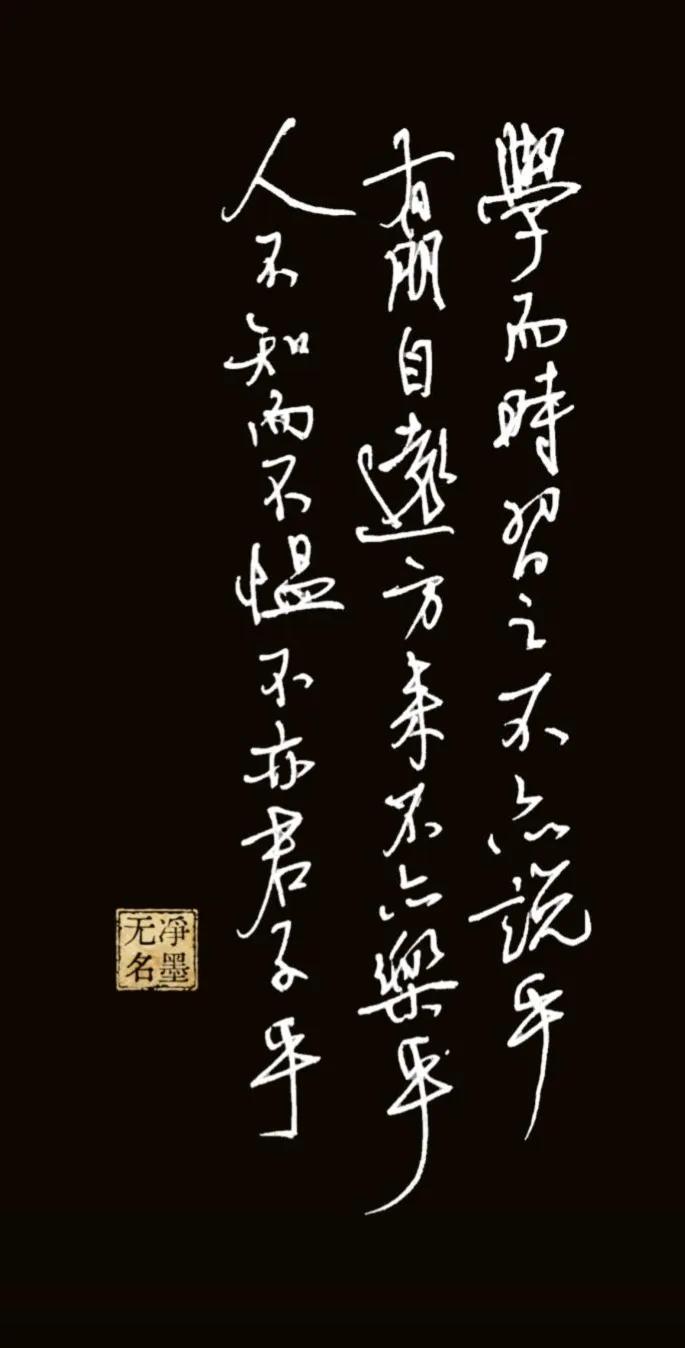 學而時習之不亦說乎
有朋自遠方来不亦樂乎
人不知而不愠不亦君子乎
凈墨
无名